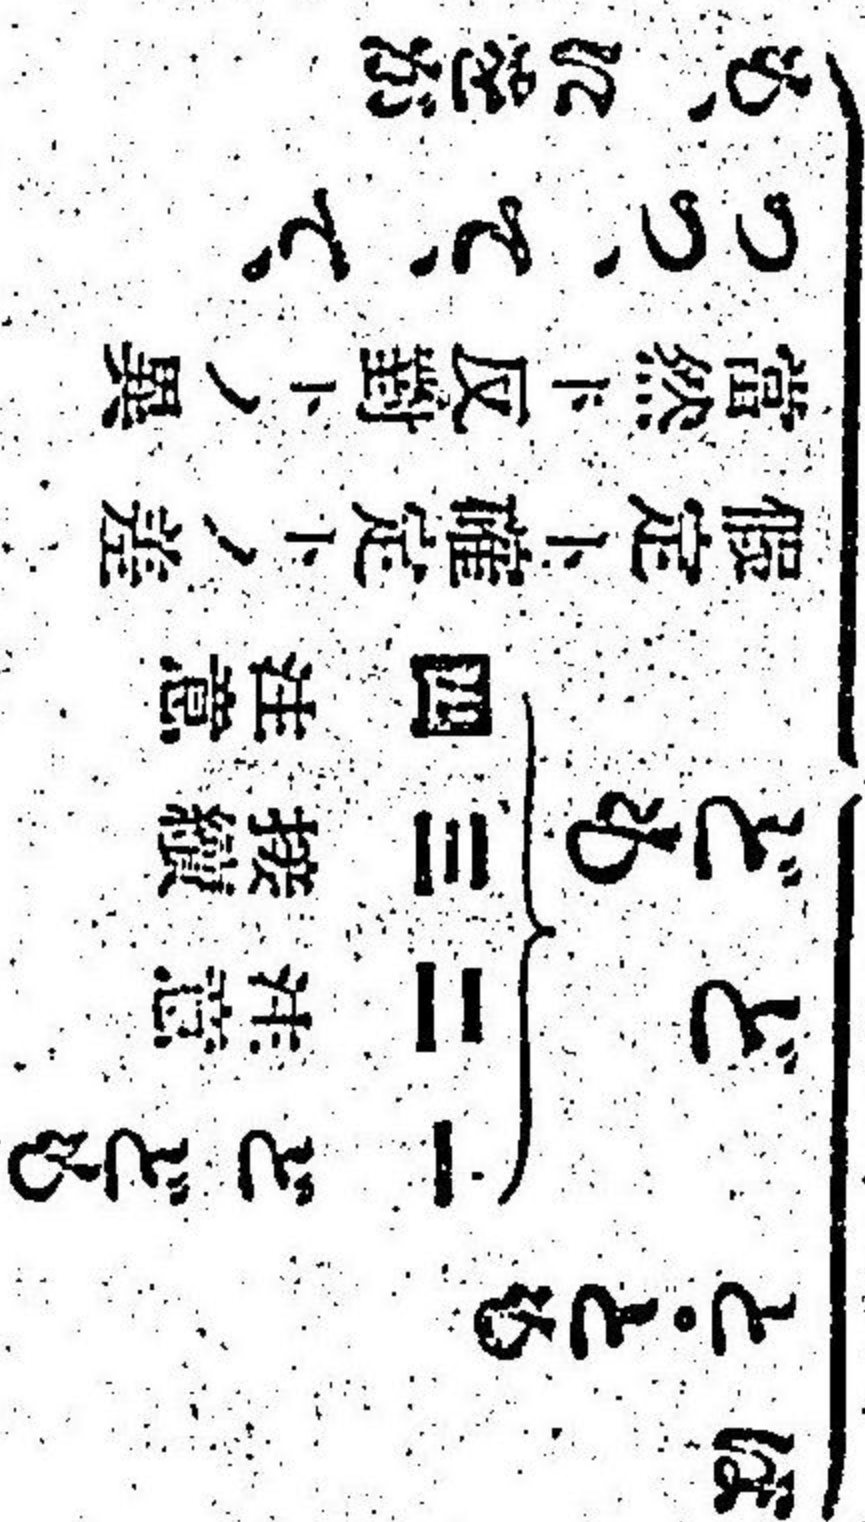 ば
と、とも
ど
ども
一 どども
二 注意
三 接續
四 注意
假定ト確定トノ差
當然ト反對トノ異
つつ、て、で、
も、にをが